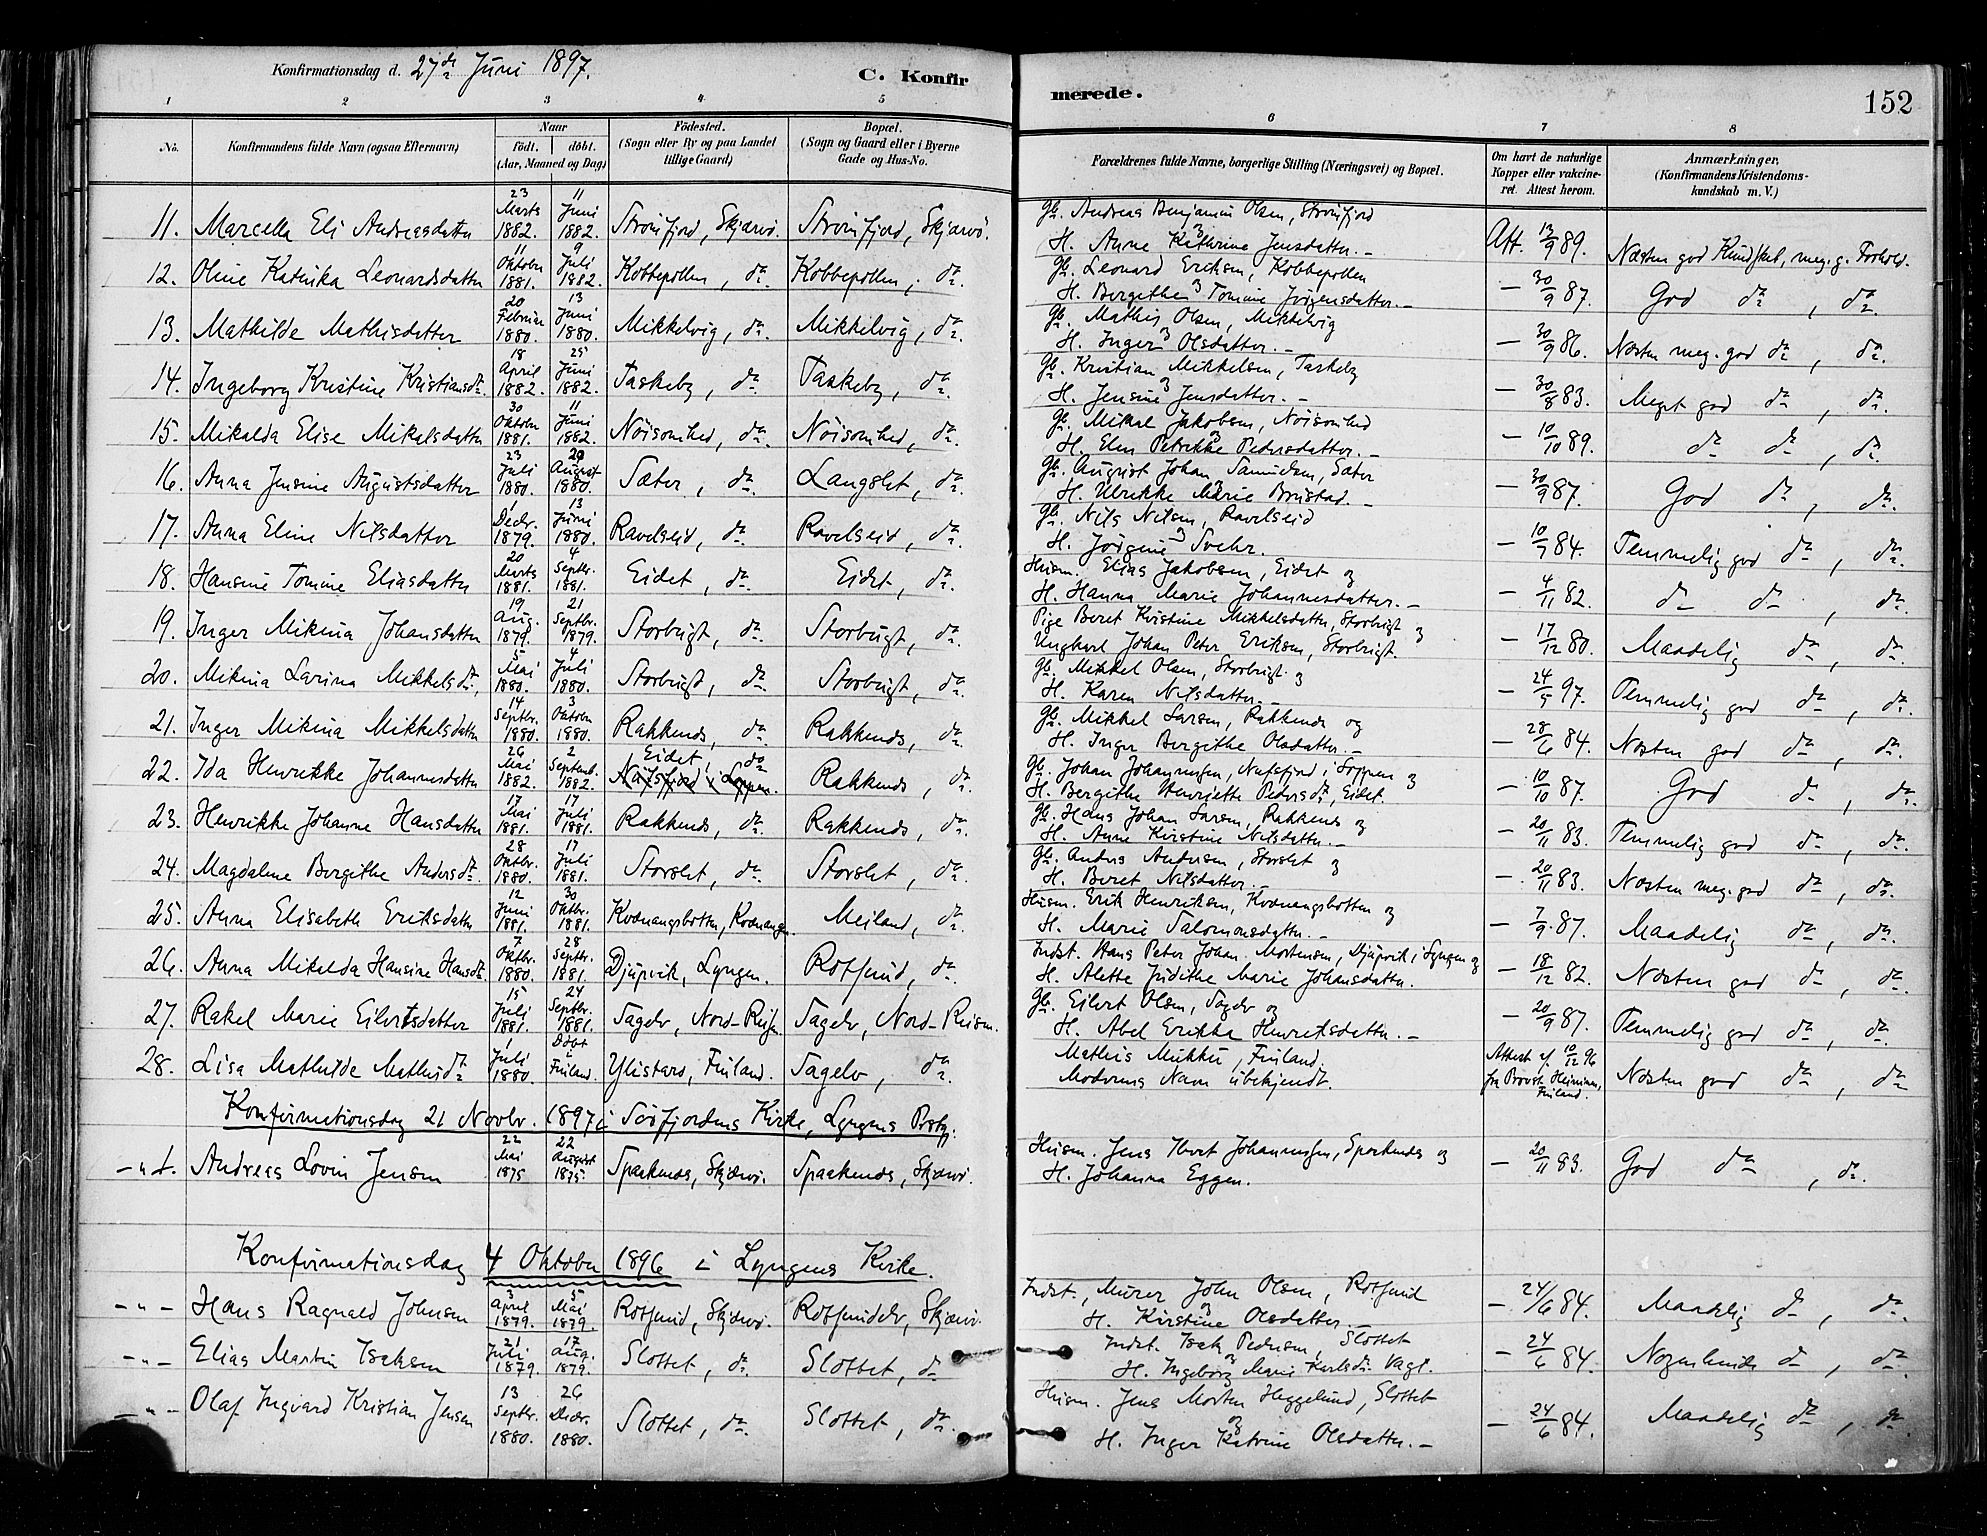 Konfirmationsdag d. 27de Juni 1897.
C. Konfir
merede.
152
1 2 3 4 5 6 7 8
No.
Konfirmandens fulde Navn (ogsaa Efternavn)
Naar
födt. döbt.
(Aar, Maaned og Dag)
Födested.
(Sogn eller By og paa Landet
tillige Gaard)
Bopæl.
(Sogn og Gaard eller i Byerne
Gade og Hus-No.
Forældrenes fulde Navne, borgerlige Stilling (Næringsvei) og Bopæl.
Om havt de naturlige
Kopper eller vakcine-
ret. Attest herom.
Anmærkninger.
(Konfirmandens Kristendoms-
kundskab m. V.)
11. Marcella Eli Andreasdatter 23 Marts 1882. 11 Juni 1882. Skjærvö. Skjærvö. Gb. Andreas Benjamin Olsen, og H. Anne Kathrine Jensdatter. Att. 13/9 89. Næsten god Kundskab, meg. g. Forhold.
12. Oline Katrika Leonardsdatter 11 Oktober 1881. 9 Juli 1882. Kobbepollen, do. Kobbepollen, do. Gb. Leonard Eriksen, Kobbepollen og H. Bergithe Tomine Jörgensdatter. 30/9 87. God do, do.
13. Mathilde Mathisdatter 20 Februar 1880. 13 Juni 1880. Mikkelvig, do. Mikkelvig, do. Gb. Mathis Olsen, Mikkelvig og H. Inger Olsdatter. 30/9 86. Næsten meg. god do, do.
14. Ingeborg Kristine Kristiansdr. 18 April 1882. 25 Juni 1882. Taskeby, do. Taskeby, do. Gb. Kristian Mikkelsen, Taskeby og H. Jensine Jensdatter. 30/8 83. Meget god do, do.
15. Mikalda Elise Mikalsdatter 30 Oktober 1881. 11 Juni 1882. Nöisomhed, do. Nöisomhed, do. Gb. Mikal Jakobsen, Nöisomhed og H. Elen Petrikke Pedersdatter. 10/10 89. do do, do
16. Anna Jensine Augustsdatter 23 Juli 1880. 29 August 1880. Sæter, do. Langslet, do. Gb. August Johan Samuelsen, Sæter og H. Ulrikke Marie Brustad. 30/9 87. God do, do.
17. Anna Eline Nilsdatter 1 Decbr. 1879. 13 Juni 1880. Ravelseid, do. Ravelseid, do. Gb. Nils Nilsen, Ravelseid og H. Jörgine 10/7 84. Temmelig god do, do.
18. Hansine Tomine Eliasdatter 20 Marts 1881. 4 Septbr. 1881. Eidet, do. Eidet, do. Husm. Elias Jakobsen, Eidet og H. Hanna Marie Johannesdatter. 4/11 82. do do, do.
19. Inger Mikina Johansdatter 19 Aug. 1879. 21 Septbr. 1879. Storbugt, do. Storbugt, do. Pige Beret Kristine Mikkelsdatter, Storbugt og Ungkarl Johan Peter Eriksen, Storbugt. 17/12 80. Maadelig do, do.
20. Mikina Larina Mikkelsdr. 5 Mai 1880. 4 Juli 1880. Storbugt, do. Storbugt, do. Gb. Mikkel Olsen, Storbugt og H. Karen Nilsdatter 24/5 97. Temmelig god do, do.
21. Inger Mikina Mikkelsdatter 14 Septbr. 1880. 3 Oktober 1880. Rakkenes, do. Rakkenes, do. Gb. Mikkel Larsen, Rakkenes og H. Inger Bergithe Olsdatter. 28/6 84. Næsten god do, do.
22. Ida Henrikke Johannesdatter 26 Mai 1882. 2 Septemb. 1882. Eidet, do Nufsfjord i Loppen. Rakkenes, do. Gb. Johan Johannessen, Nufsfjord i Loppen og H. Bergithe Henriette Pedersdr., Eidet. 10/10 87. God do, do.
23. Henrikke Johanne Hansdatter 17 Mai 1881. 17 Juli 1881. Rakkenes, do. Rakkenes, do. Gb. Hans Johan Larsen, Rakkenes og H. Anne Kirstine Nilsdatter. 20/11 83. Temmelig god do, do.
24. Magdalene Bergithe Andersdr. 28 Oktbr. 1880. 17 Juli 1881. Storslet, do. Storslet, do. Gb. Anders Andersen, Storslet og H. Beret Nilsdatter. 20/11 83. Næsten meg. god do, do.
25. Anna Elisabeth Eriksdatter 12 Juni 1881. 30 Oktbr. 1881. Kvænangsbotten, Kvænangen. Meiland, do. Husm. Erik Henriksen, Kvænangsbotten og H. Marie Salomonsdatter. 7/9 87. Maadelig do, do.
26. Anna Mikalda Hansine Hansdr. 7 Oktbr. 1880. 28 Septbr. 1881. Djupvik, Lyngen. Rotsund, do. Indst. Hans Peter Johan Mortensen, Djupvik i Lyngen og H. Alette Marie Johansdatter. 18/12 82. Næsten god do, do.
27. Rakel Marie Eilertsdatter 15 Juli 1881. 24 Septbr. 1881. Sagelv, Nord-Reisen Sagelv, Nord-Reisen. Gb. Eilert Olsen, Sagelv og H. Abel Erikka Henriksdatter. 20/9 87. Temmelig god do, do.
28. Lisa Mathilde Mathisdr. 1 Juli 1880. Döbt i Finland. Ylistaro, Finland. Sagelv, do. Mathis Mukku, Finland. Moderens Navn ubekjendt. Attest af 10/12 96 fra Provst Heiman, Finland. Næsten god do, do
Konfirmationsdag 21 Novbr. 1897 i Sörfjordens Kirke, Lyngens Prstgj.
Andreas Lovin Jensen 22 Mai 1875 22 August 1875. Spaakenes, Skjærvö. Spaakenes, Skjærvö. Husm. Jens Hvert Johannessen, Spaakenes og H. Johanna Eggen. 20/11 83. God do, do.
Konfirmationsdag 4 Oktober 1896 i Lyngens Kirke.
Hans Ragnald Johnsen 3 April 1879. 5 Mai 1879. Rotsund, Skjærvö. Rotsundelv, Skjærvö. Indst., Murer John Olsen, Rotsund og H. Kirstine Olsdatter. 24/6 84. Maadelig do, do.
Elias Martin Isaksen 21 Juli 1879. 17 Aug. 1879. Slottet, do. Slottet, do Indst. Isak Pedersen, Slottet og H. Ingeborg Marie Karlsdr. Vagt. 24/6 84. Nogenlunde do, do
Olaf Ingvard Kristian Jensen 13 Septbr. 1880. 26 Decbr. 1880. Slottet, do. Slottet, do. Husm. Jens Morten Heggelund, Slottet og H. Inger Katrine Olsdatter. 24/6 84. Maadelig do, do